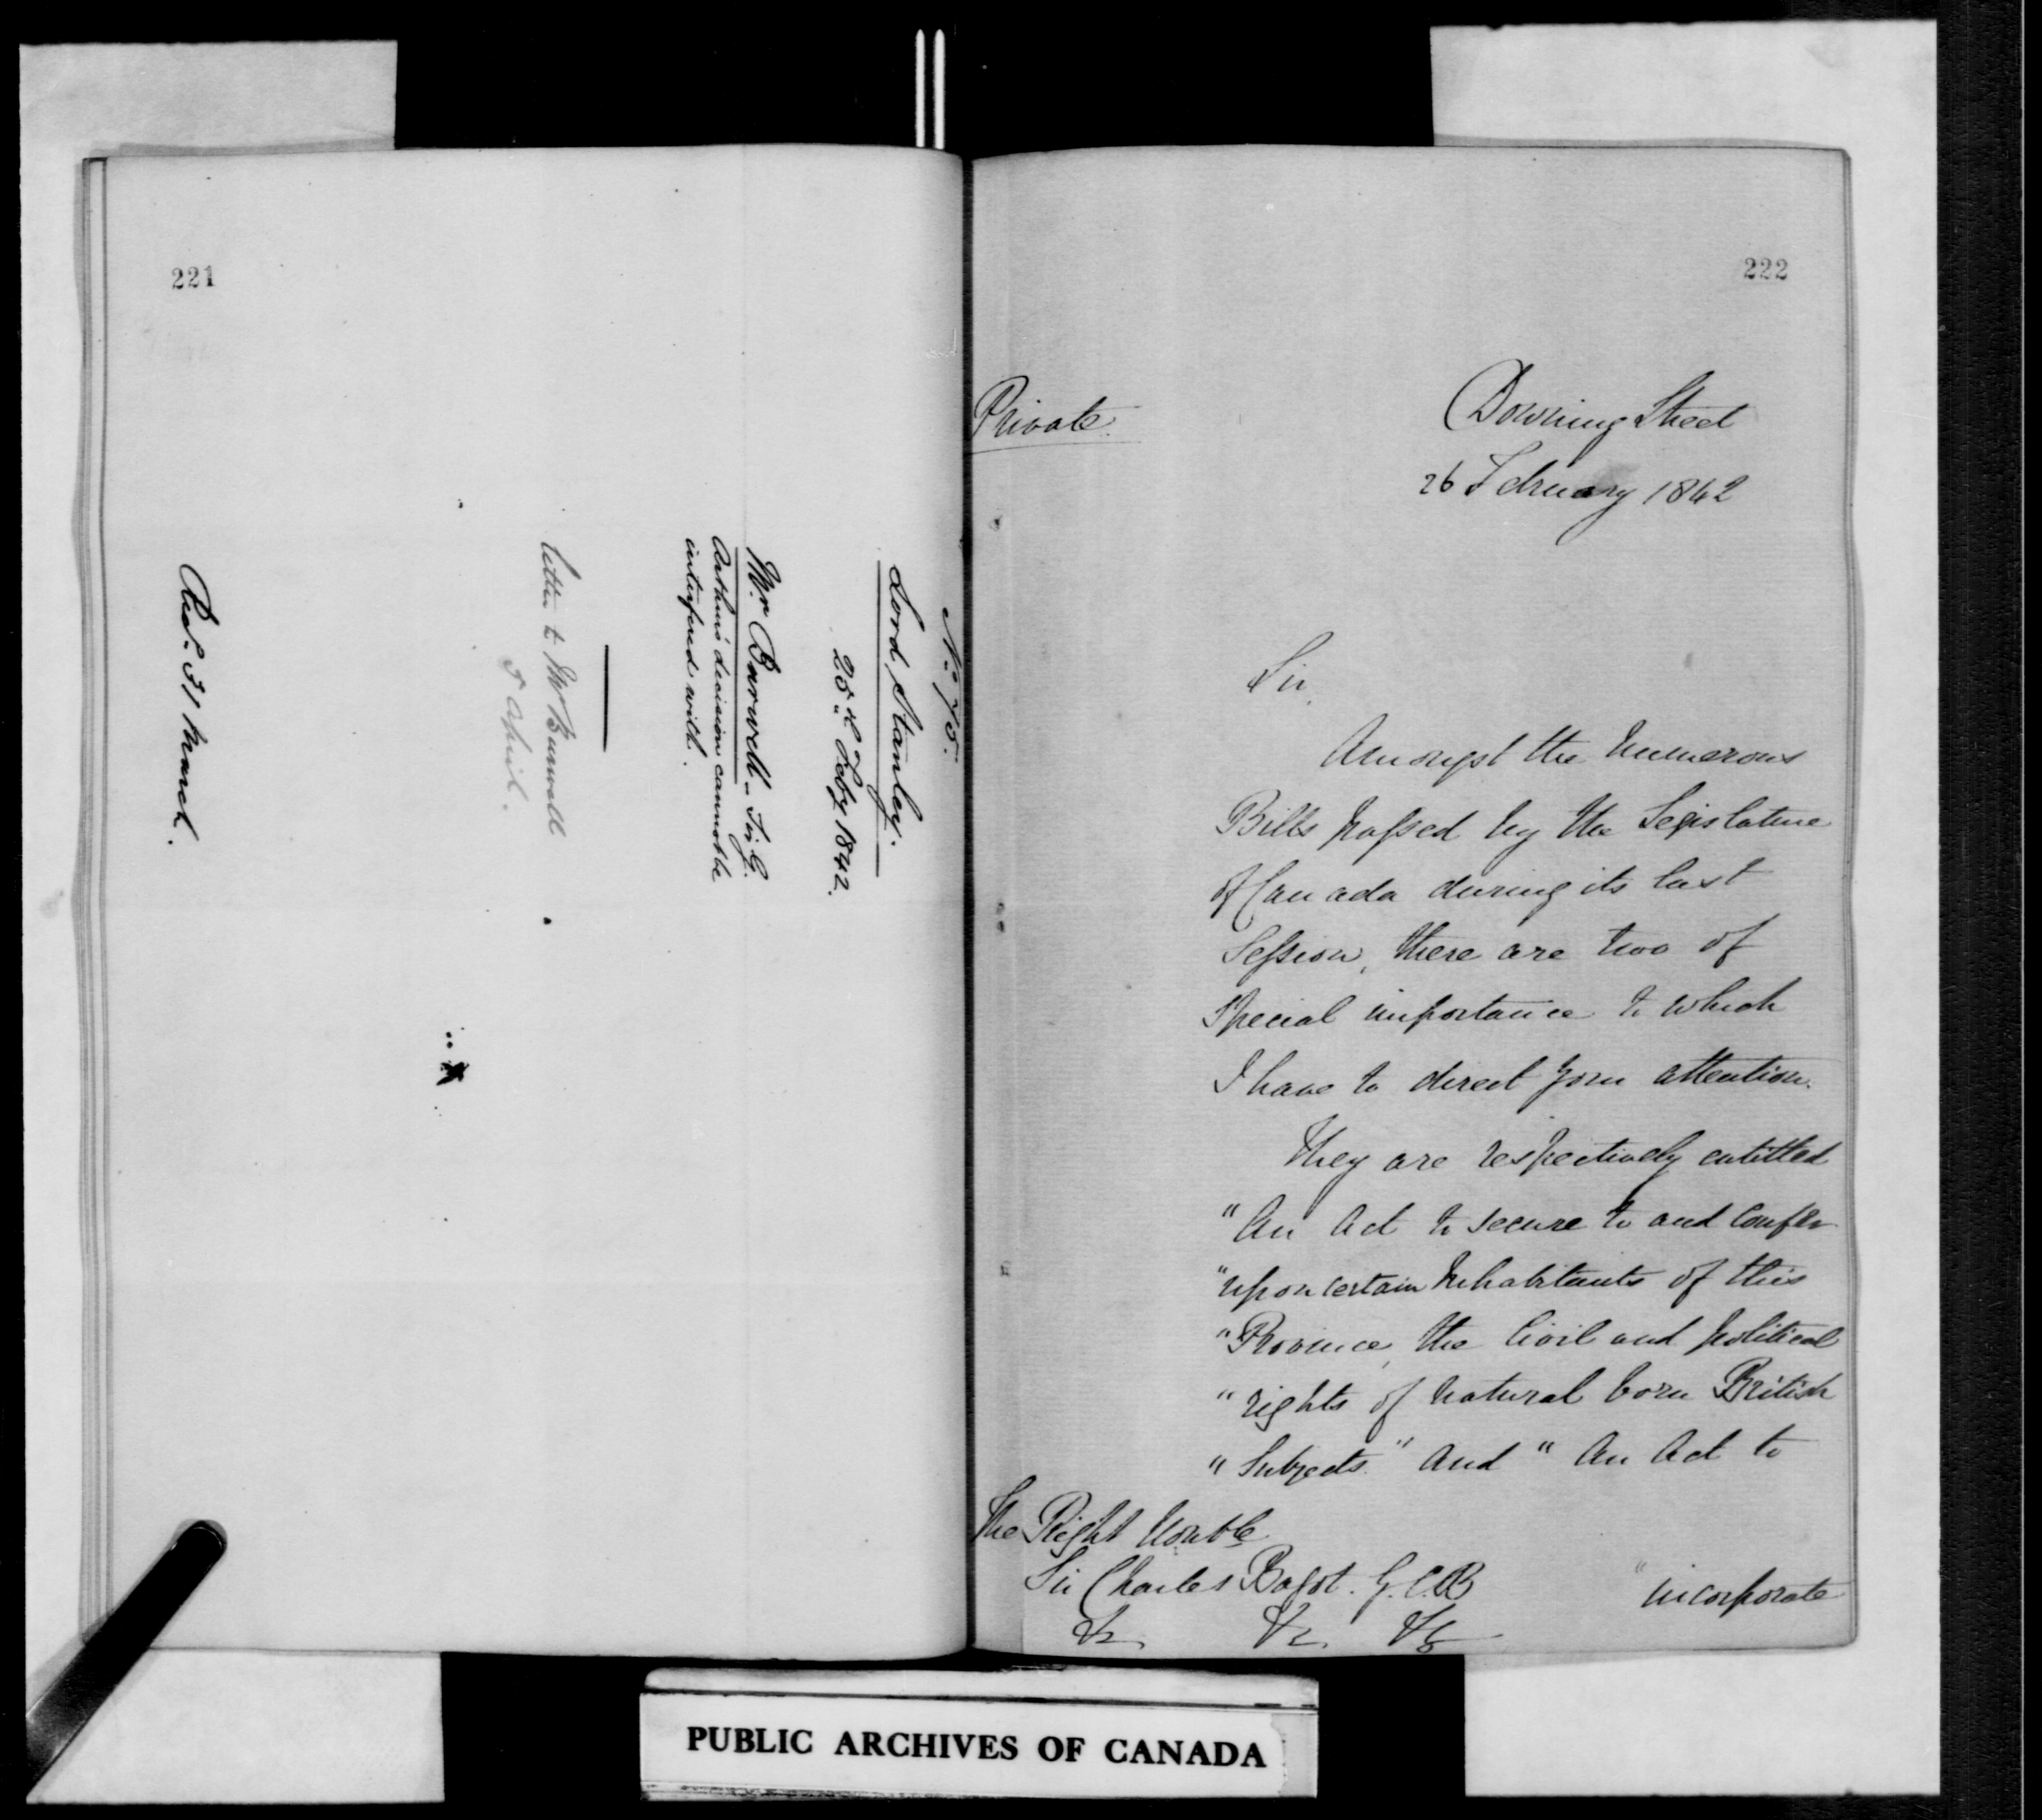 221
No. 75.
Lord Stanley.
25th Feby 1842.
Mr Burwell - Sir G.
Arthur's decision cannot be
interfered with.
letter to Mr Burwell
5 April.
Recd. 31 March.
222
Private.
Downing Street
26 February 1842
Sir,
Amongst the numerous
Bills passed by the Legislature
of Canada during its last
Session, there are two of
special importance to which
I have to direct your attention.
They are respectively entitled
"An Act to secure to and confer
"upon certain Inhabitants of this
"Province, the Civil and political
"rights of natural born British
"Subjects." And "An Act to
The Right Honble
Sir Charles Bagot. G.C.B
&c. &c. &c
"incorporate
PUBLIC ARCHIVES OF CANADA